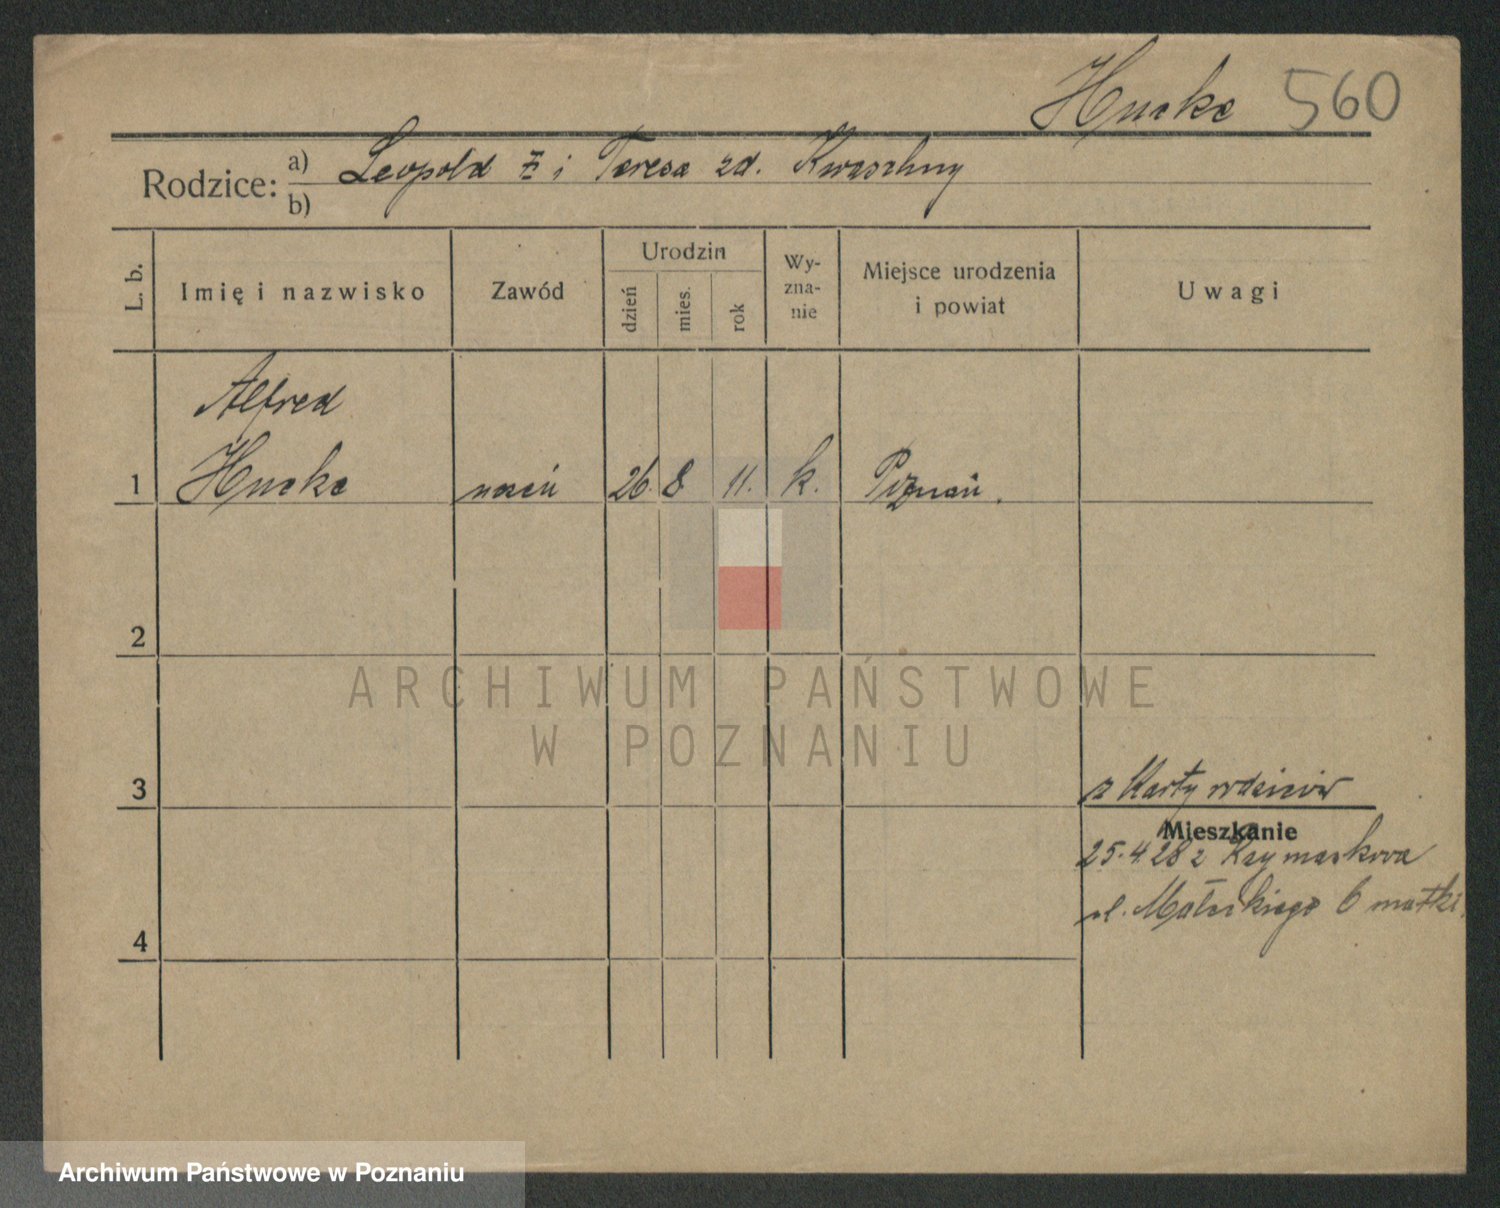 Hucke 560
Rodzice: a) Leopold i Teresa zd.
b)
L. b. Imię i nazwisko Zawód Urodzin dzień mies. rok Wyznanie Miejsce urodzenia i powiat Uwagi
Alfred
1 Hucke uczeń 26. 8. 11. k. Poznań.
2
ARCHIWUM PAŃSTWOWE
W POZNANIU
3 z Karty rodziców
Mieszkanie
25.4.28 z
ul. Małeckiego 6 matki.
4
Archiwum Państwowe w Poznaniu